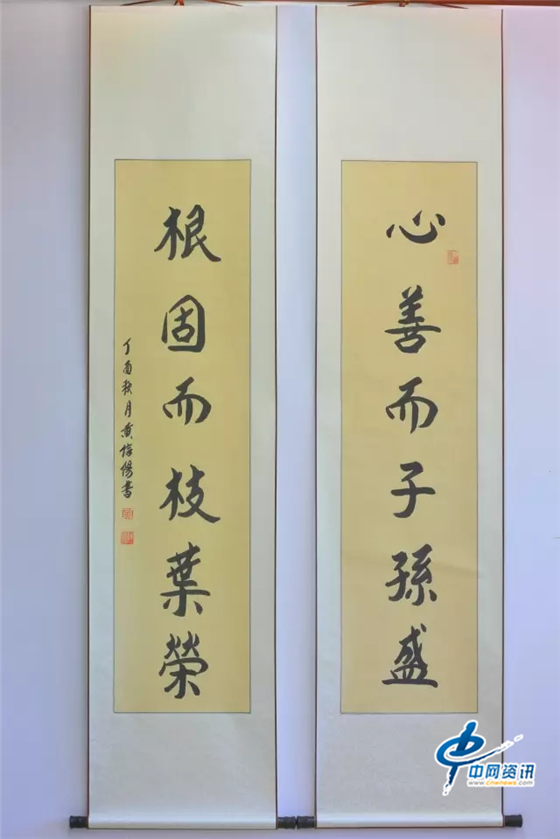 心善而子孫盛
根固而枝葉榮
丁酉秋月黄
書
中网资讯
www.cnwnews.com